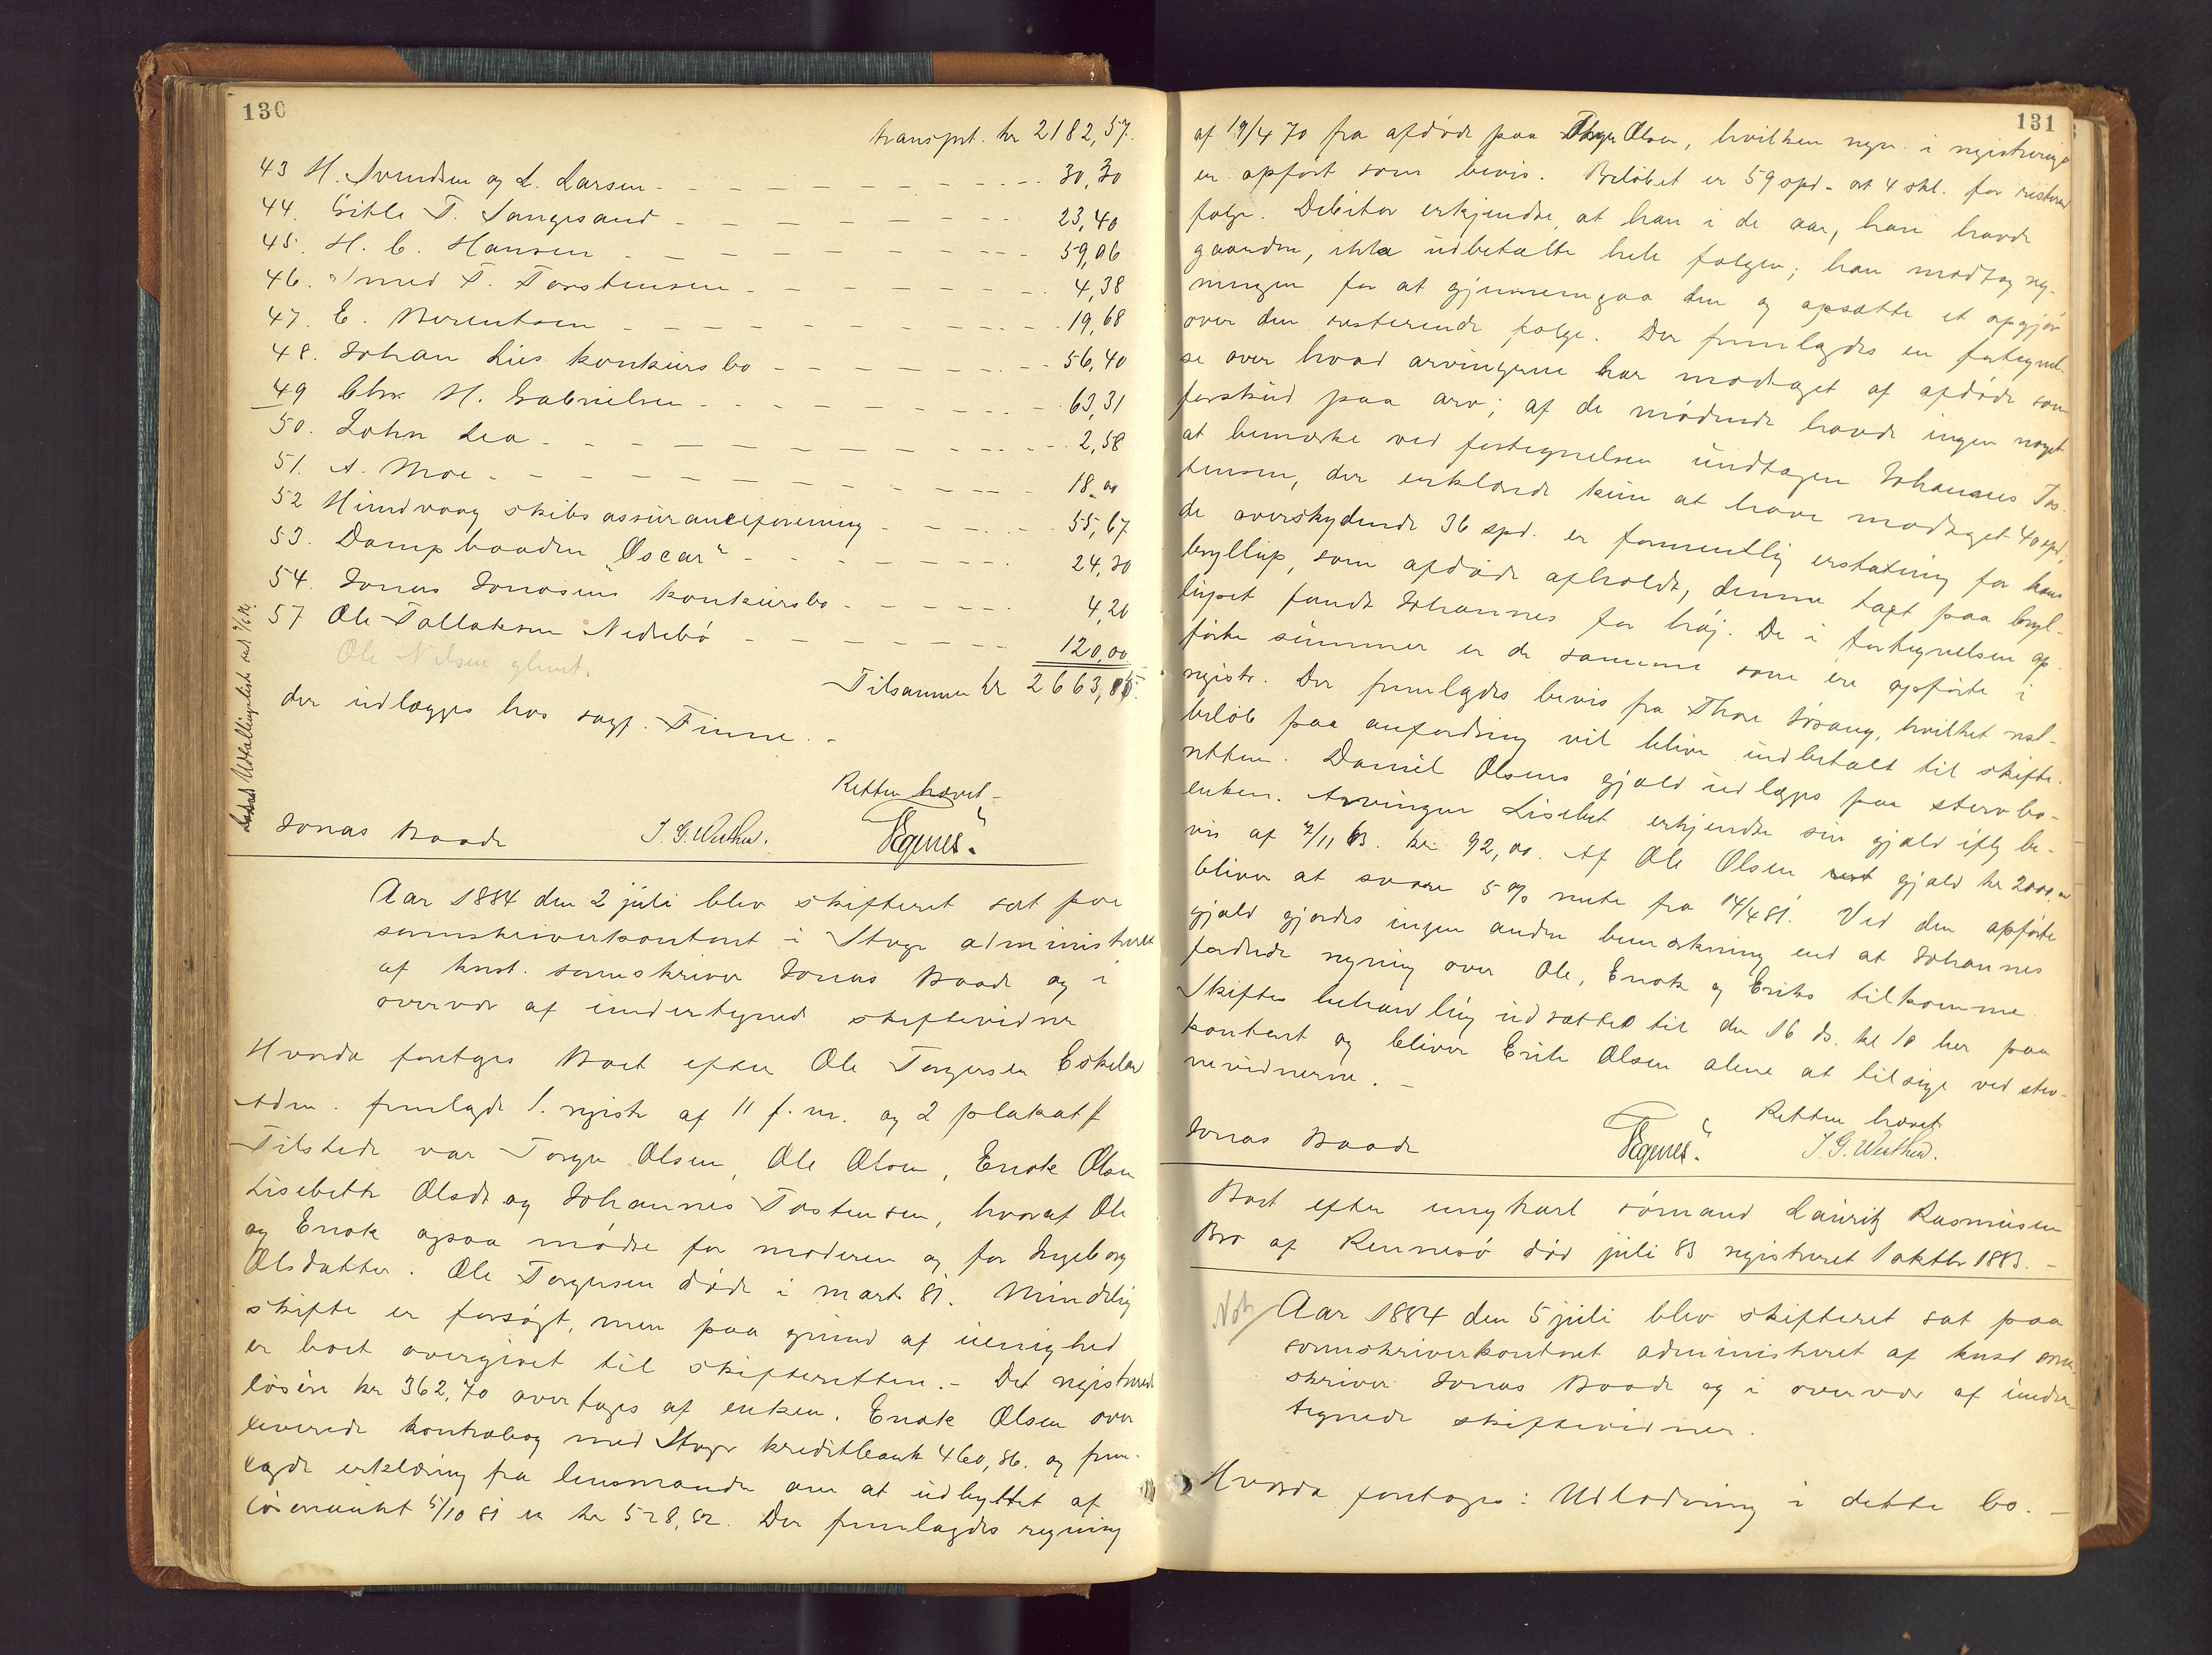 130
transprt. kr 2182,57.
43 H. Svendsen og L. Larsen - - - 30,30
44. Gitle T. Sangesand - - - 23,40
45. H. C. Hansen - - - 59,06
46. Smed T. Torstensen - - - 4,38
47. E. Berentsen - - - 19,68
48. Johan Lies konkursbo - - - 56,40
49 Chr. H. Gabrielsen - - - 63,31
50. John Lea - - - 2,58
51. A. Moe - - - 18,00
52 Hundvaag skibsassuranceforening - - - 55,67
53. Dampbaaden "Oscar" - - - 24,30
54. Jonas Jonasens konkursbo - - - 4,20
57 Ole Tollaksen Nedrebö - - - 120,00
Ole Nilsen glemt.
Tilsammen kr 2663,05.
der udlægges hos sagf. Finne. -
Retten hævet -
Jonas Baade J. G. Werthed. Egenes.
Aar 1884 den 2 juli blev skifteret sat paa
sorenskriverkontoret i Stvgr administreret
af knst. sorenskriver Jonas Baade og i
overvær af undertegned skiftevidner
Hvorda foretoges Boet efter Ole Torgersen Eskeland
Adm. fremlagde 1. registr af 11 f. m. og 2 plakat
Tilstede var Torger Olsen, Ole Olsen, Enok Olsen
Lisebette Olsdt og Johannes Tostensen, hvoraf Ole
og Enok ogsaa mödte for moderen og for Ingeborg
Olsdatter. Ole Torgersen döde i marts 81. Mindelig
skifte er forsögt, men paa grund af uenighed
er boet overgivet til skifteretten. - Det registrerede
lösöre kr 362,70 overtages af enken. Enok Olsen over
leverede kontrabog med Stvgr kreditbank 460,86. og frem-
lagde erklæring fra lensmanden om at udbyttet af
lösöreaukt 5/10 81 er kr 528,82. Der fremlagdes regning
131
af 19/4 70 fra afdöde paa Torger Olsen, hvilken regn. i registreringen
er opfört som bevis. Belöbet er 59 spd - ort 4 skl. for resterend
folge. Debitor erkjendte, at han i de aar, han havde
gaarden, ikke udbetalte hele folgen; han modtog reg-
ningen for at gjennemgaa den og opsætte et opgjör
over den resterende folge. Der fremlagdes en fortegnel-
se over hvad arvingerne har modtaget af afdöde som
forskud paa arv; af de mödende havde ingen noget
at bemærke ved fortegnelsen undtagen Johannes Tos-
tensen, der erklærede kun at have modtaget 40 spd,
de overskydende 36 spd. er formentlig erstatning for hans
bryllup, som afdöde afholdt, denne taxt paa bryl-
lupet fandt Johannes for höj. De i fortegnelsen op-
förte summer er de samme som ere opförte i
registr. Der fremlagdes bevis fra Thore Jösang, hvilket
belöb paa anfordring vil blive indbetalt til skifte-
retten. Daniel Olsens gjæld udlægges paa stervbo-
enken. Arvingen Lisebet erkjendte sin gjæld iflg be-
vis af 7/11 63. kr 92,00. Af Ole Olsen gjæld kr 2000,00
bliver at svare 5 % rente fra 14/4 81. Ved den opförte
gjæld gjordes ingen anden bemærkning end at Johannes
fordrede regning over Ole, Enok og Eriks tilkomme
Skiftes behandling udsættes til den 16 ds. kl 10 her paa
kontoret og bliver Erik Olsen alene at tilsige ved stev-
nevidnerne. -
Retten hævet
Jonas Baade Egenes. J. G. Werthed.
Boet efter ungkarl sömand Lauritz Rasmussen
Bro af Rennesö död juli 83 registreret 1 oktbr 1883. -
Aar 1884 den 5 juli blev skifteret sat paa
sorenskriverkontoret administreret af knst soren
skriver Jonas Baade og i overvær af under-
tegnede skiftevidner.
Hvorda foretoges: Udlodning i dette bo. -